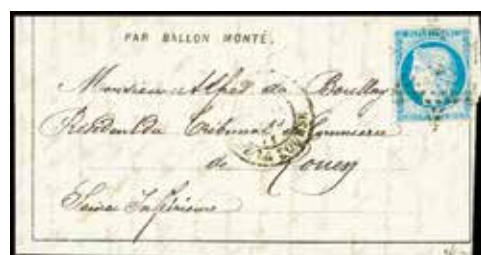 PAR BALLON MONTÉ.
Monsieur Alfred du Boullay
Président du Tribunal de Commerce
de Rouen
Seine Inférieure